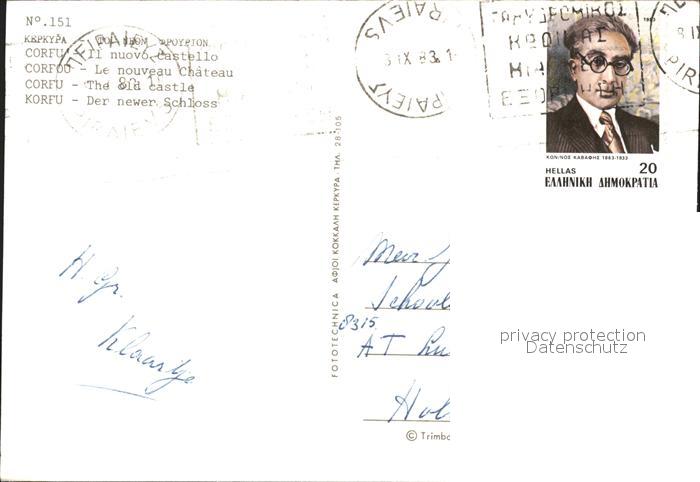 Nº.151
ΚΕΡΚΥΡΑ - ΤΟ ΝΕΟΝ ΦΡΟΥΡΙΟΝ
CORFU' - Il nuovo Castello
CORFOU - Le nouveau Château
CORFU - The old castle
KORFU - Der newer Schloss
ΠΕΙΡΑΙΕΥΣ
PIRAIEVS
IX 83
ΤΑΧΥΔΡΟΜΙΚΟΣ
ΚΩΔΙΚΑΣ
1983
ΚΩΝ/ΝΟΣ ΚΑΒΑΦΗΣ 1863-1933
HELLAS 20
ΕΛΛΗΝΙΚΗ ΔΗΜΟΚΡΑΤΙΑ
FOTOTECHNICA ΑΦ|ΟΙ ΚΟΚΚΑΛΗ ΚΕΡΚΥΡΑ - ΤΗΛ. 28-105
H. Gr.
Klaartje
Mevr.
School
8315
AT Lu
Hol
© Trimbo
privacy protection
Datenschutz